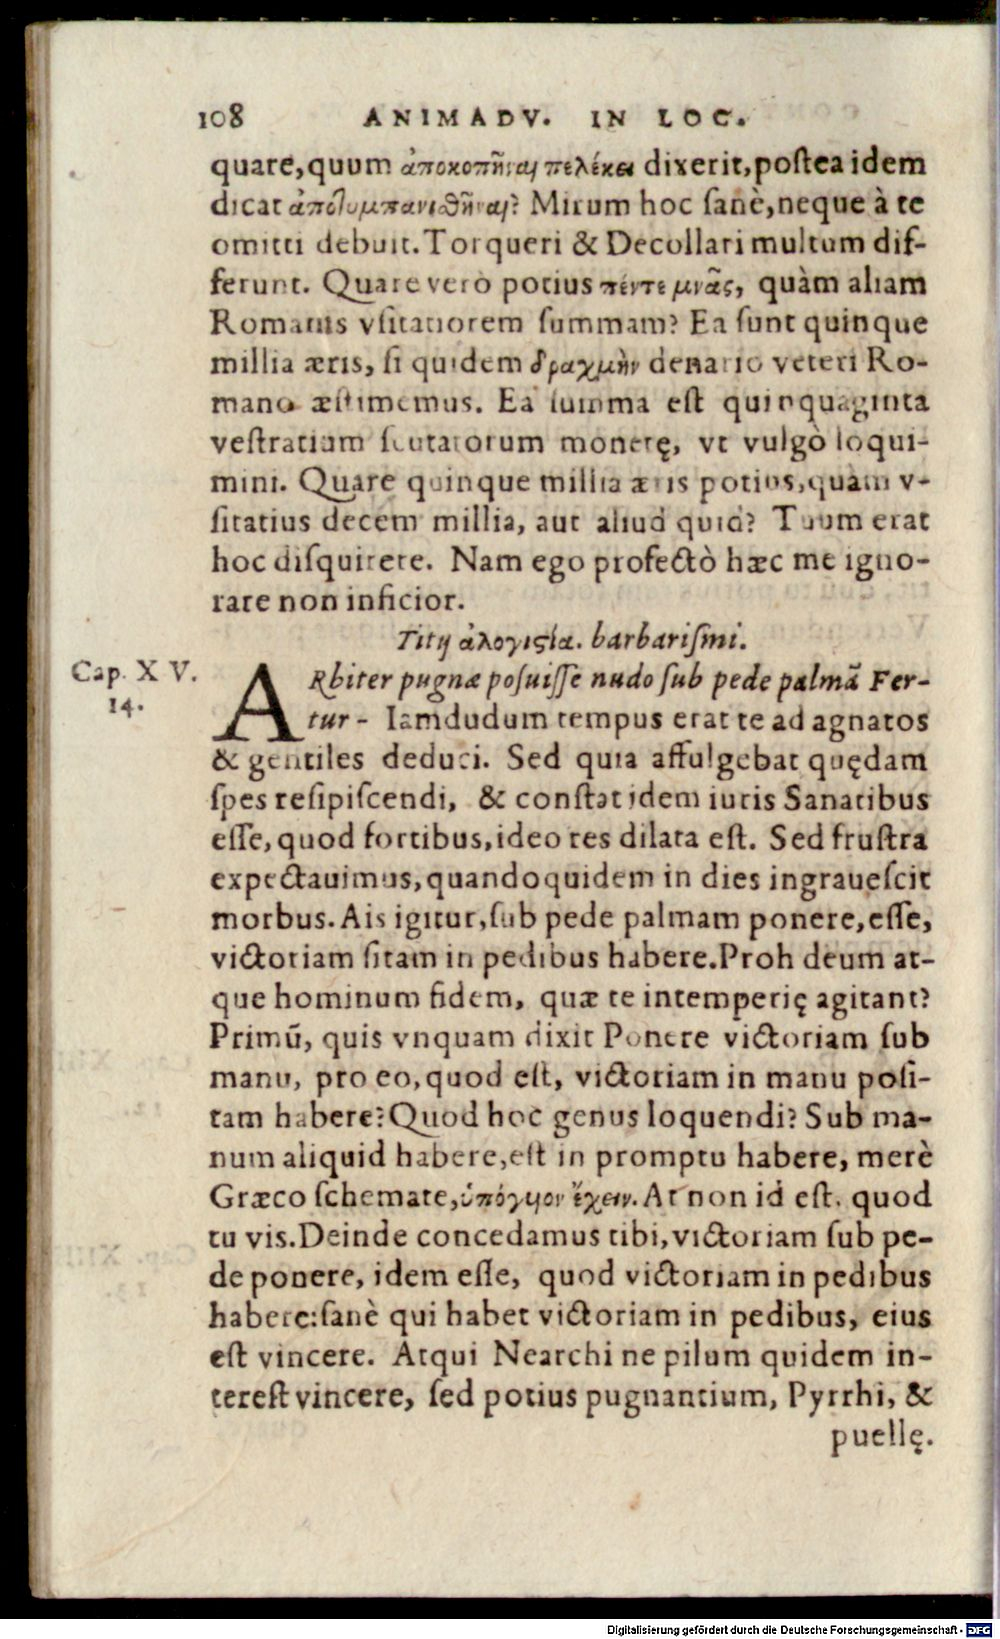 108 ANIMADV. IN LOC.
quare, quum ἀποκοπῆναι πελέκει dixerit, postea idem
dicat ἀποτυμπανισθῆναι? Mirum hoc sanè, neque à te
omitti debuit. Torqueri & Decollari multum dif-
ferunt. Quare verò potius πέντε μνᾶς, quàm aliam
Romanis vsitatiorem summam? Ea sunt quinque
millia æris, si quidem δραχμὴν denario veteri Ro-
mano æstimemus. Ea summa est quinquaginta
vestratium scutatorum monetę, vt vulgò loqui-
mini. Quare quinque millia æris potius, quàm v-
sitatius decem millia, aut aliud quid? Tuum erat
hoc disquirere. Nam ego profectò hæc me igno-
rare non inficior.
Titij ἀλογιςία. barbarismi.
Cap. XV.
14.
ARbiter pugnæ posuisse nudo sub pede palmã Fer-
tur - Iamdudum tempus erat te ad agnatos
& gentiles deduci. Sed quia affulgebat quędam
spes resipiscendi, & constat idem iuris Sanatibus
esse, quod fortibus, ideo res dilata est. Sed frustra
expectauimus, quandoquidem in dies ingrauescit
morbus. Ais igitur, sub pede palmam ponere, esse,
victoriam sitam in pedibus habere. Proh deum at-
que hominum fidem, quæ te intemperię agitant?
Primũ, quis vnquam dixit Ponere victoriam sub
manu, pro eo, quod est, victoriam in manu posi-
tam habere? Quod hoc genus loquendi? Sub ma-
num aliquid habere, est in promptu habere, merè
Græco schemate, ὑπόγυιον ἔχειν. At non id est, quod
tu vis. Deinde concedamus tibi, victoriam sub pe-
de ponere, idem esse, quod victoriam in pedibus
habere: sanè qui habet victoriam in pedibus, eius
est vincere. Atqui Nearchi ne pilum quidem in-
terest vincere, sed potius pugnantium, Pyrrhi, &
puellę.
Digitalisierung gefördert durch die Deutsche Forschungsgemeinschaft - DFG